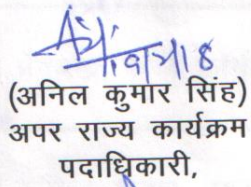 (अनिल कुमार सिंह)
अपर राज्य कार्यक्रम
पदाधिकारी,